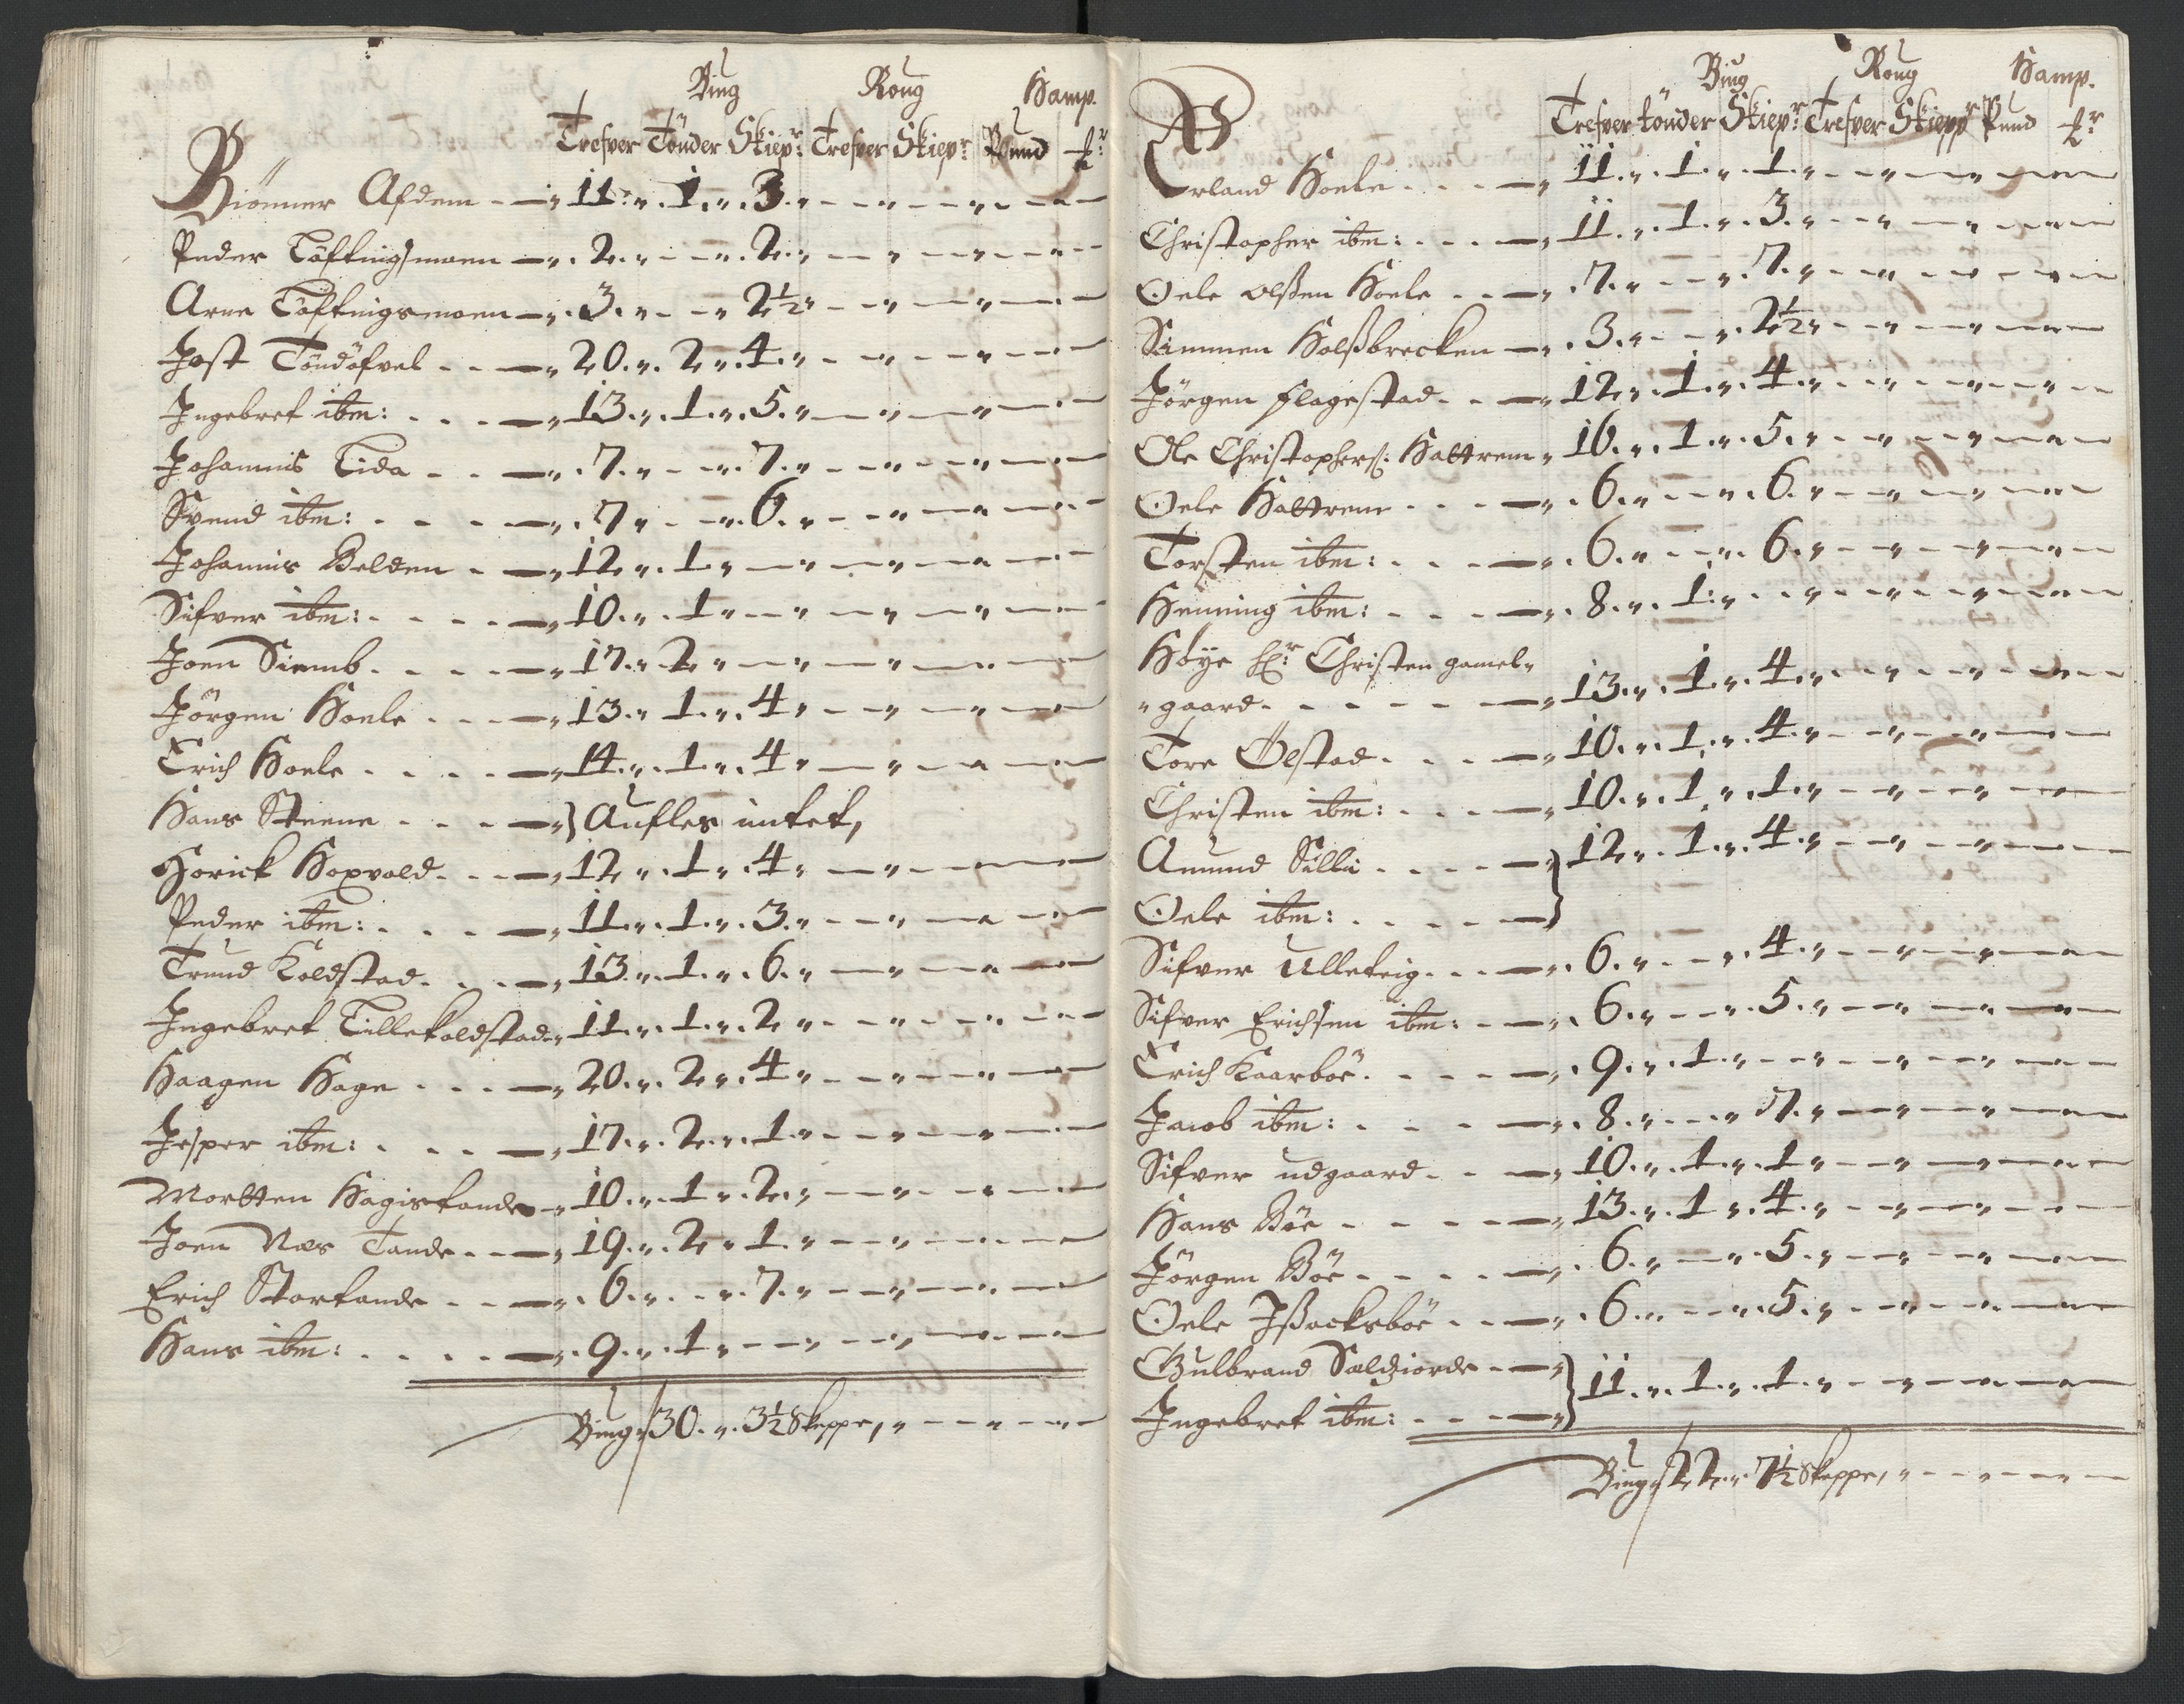 Biug Roug Hamp.
Trefver Tönder Skiepr: Trefver Skiepr: Pund
Biönner Afdem 11 1 3
Peder Töfftingsmoen 2 2
Arne Töfftingsmoen 3 2½
Jost Töndöfvel 20 2 4
Ingebret ibm: 13 1 5
Johannis Lida 7 7
Svend ibm: 7 6
Johannis Belden 12 1
Sifver ibm: 10 1
Joen Siemb 17 2
Jörgen Hoele 13 1 4
Erich Hoele 14 1 4
Hans Steene } Aufles intet,
Horick Hoxvold 12 1 4
Peder ibm: 11 1 3
Trund Koldstad 13 1 6
Ingebret Lillekoldstad 11 1 2
Haagen Hage 20 2 4
Jesper ibm: 17 2 1
Mortten Hagistande 10 1 2
Joen Nes Tande 19 2 1
Erich Stortande 6 7
Hans ibm: 9 1
Biug 30 3½ Skeppe,
Biug Roug Hamp.
Trefver tönder Skiepr: Trefver Skiepp Pund
Erland Hoele 11 1 1
Christopher ibm: 11 1 3
Oele olßen Hoele 7 7
Simmen Holßbrecken 3 2½
Jörgen flagestad 12 1 4
Ole Christophers: Hattrem 16 1 5
Oele Hattrem 6 6
Torsten ibm: 6 6
Henning ibm: 8 1
Höye Hr: Christen gamel
gaard 13 1 4
Tore Ölstad 10 1 4
Christen ibm: 10 1 1
Amund Silli } 12 1 4
Oele ibm: }
Sifver Ulleteig 6 4
Sifver Erichsen ibm: 6 5
Erich Kaarböe 9 1
Jacob ibm: 8 7
Sifver udgaard 10 1 1
Hans Böe 13 1 4
Jörgen Böe 6 5
Oele Ißacksböe 6 5
Gulbrand Sælziorde } 11 1 1
Ingebret ibm: }
Biug 22 7½ Skeppe,